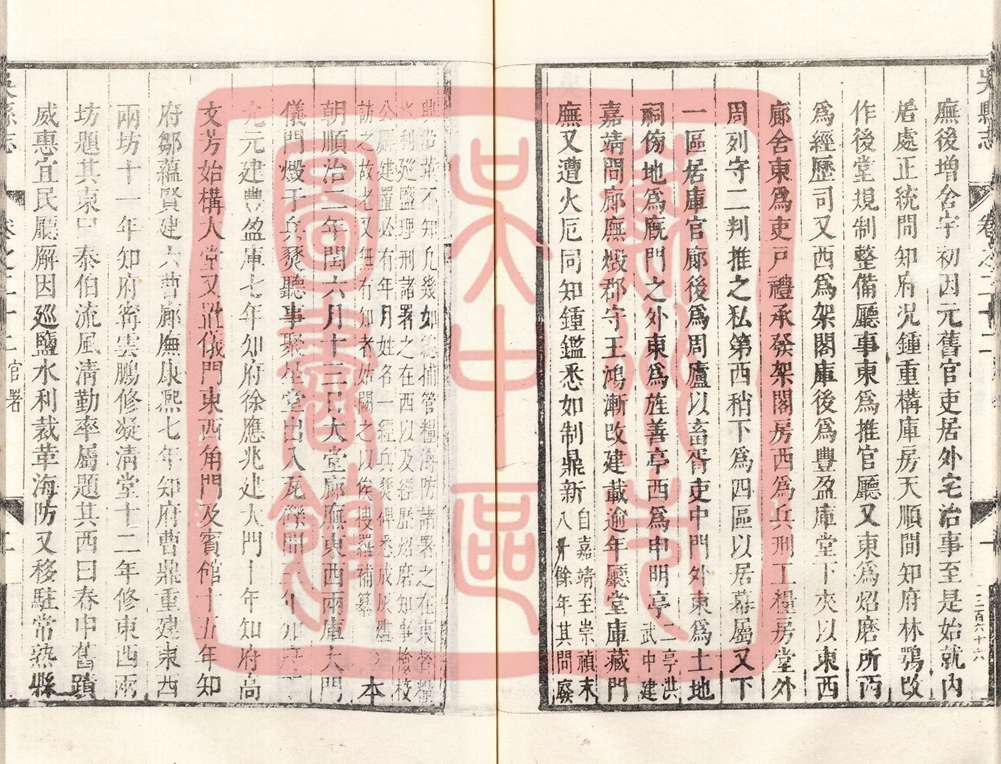 吳縣志
廡後增舍宇初因元舊官吏居外宅治事至是始就內
居處正統間知府况鍾重構庫房天順間知府林鶚改
作後堂規制整備廳事東爲推官廳又東爲炤磨所西
爲經歷司又西爲架閣庫後爲豐盈庫堂下夾以東西
廊舍東爲吏戶禮承發架閣房西爲兵刑工糧房堂外
周列守二判推之私第西稍下爲四區以居幕屬又下
一區居庫官廨後爲周廬以畜胥吏中門外東爲土地
祠傍地爲廐門之外東爲旌善亭西爲申明亭二亭洪武中建
嘉靖間廊廡燬郡守王鴻漸改建葴逾年廳堂庫藏門
廡又遭火厄同知鍾鑑悉如制鼎新自嘉靖至崇禎末八十餘年其間廢
興沿革不知凡幾如總捕管糧海防諸署之在東督糧
水利廵鹽理刑諸署之在西以及經歷炤磨知事檢校
公廨建置必有年月姓名一經兵燹俾悉成灰燼
訪之故老又無有知者姑闕之以俟搜羅補纂 本
朝順治二年閏六月十三日大堂廊廡東西兩庫大門
儀門燬于兵燹聽事聚星堂出入瓦礫間
允元建豐盈庫七年知府徐應兆建大門十年知府高
文芳始構大堂又設儀門東西角門及賓館十五年知
府鄒蘊賢建六曹廊廡康熙七年知府曹鼎重建東西
兩坊十一年知府甯雲鵬修凝清堂十二年修東西兩
坊題其東曰泰伯流風清勤率屬題其西曰春申舊蹟
威惠宜民廳廨因廵鹽水利裁革海防又移駐常熟縣
吳縣志
卷之二十二 官署